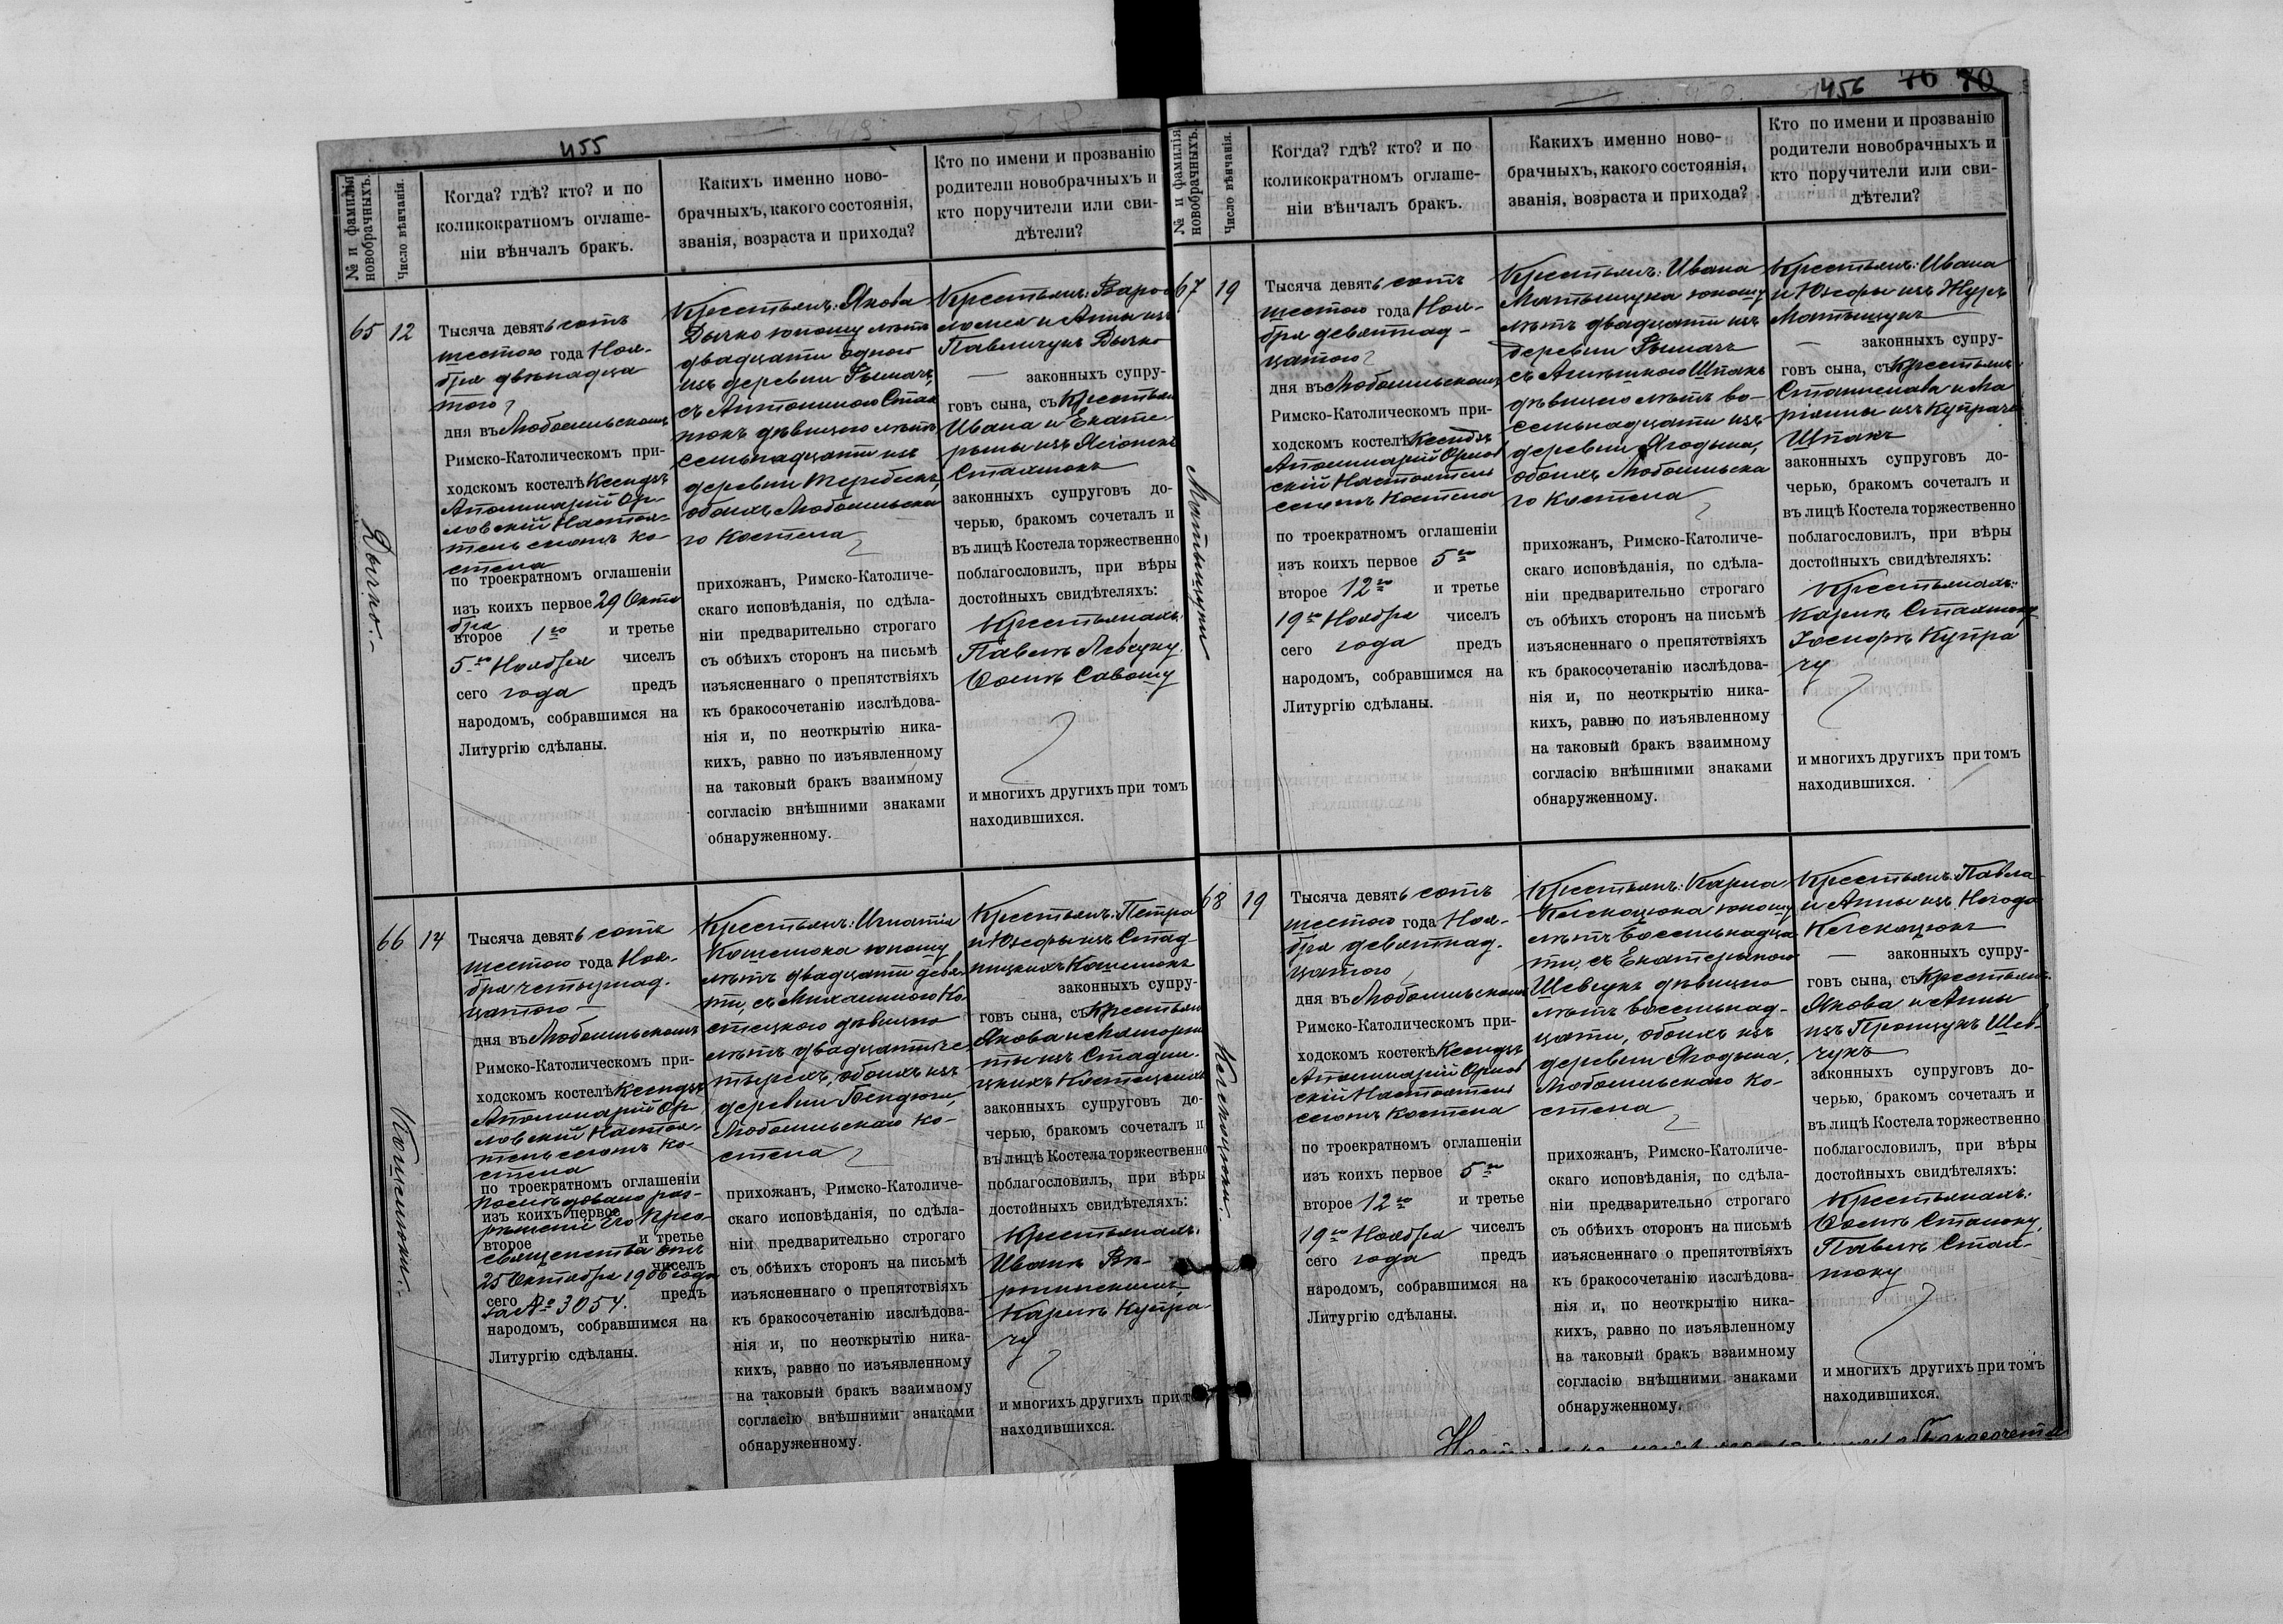 455
№ и фамилія новобрачныхъ.
Число вѣнчанія.
Когда? гдѣ? кто? и по
коликократномъ оглаше-
ніи вѣнчалъ бракъ.
Какихъ именно ново-
брачныхъ, какого состоянія,
званія, возраста и прихода?
Кто по имени и прозванію
родители новобрачныхъ и
кто поручители или сви-
дѣтели?
65
12
Дычко.
Тысяча девятьсотъ
шестого года Ноя-
бря двѣнадца
того
дня въ Любомльскомъ
Римско-Католическомъ при-
ходскомъ костелѣ Ксендзъ
Аполинарій Ор-
ловскій Настоя-
тель сего ко-
стела
по троекратномъ оглашеніи
изъ коихъ первое 29 Октя
бря
второе 1го и третье
5го Ноября чиселъ
сего года предъ
народомъ, собравшимся на
Литургію сдѣланы.
Крестьянъ: Якова
Дычко юношу лѣтъ
двадцати одного
изъ деревни Рымачъ,
съ Антониною Стал
тюкъ дѣвицею лѣтъ
семьнадцати изъ
деревни
обоихъ Любомльска
го Костела
прихожанъ, Римско-Католиче-
скаго исповѣданія, по сдѣла-
ніи предварительно строгаго
съ обѣихъ сторонъ на письмѣ
изъясненнаго о препятствіяхъ
къ бракосочетанію изслѣдова-
нія и, по неоткрытію ника-
кихъ, равно по изъявленному
на таковый бракъ взаимному
согласію внѣшними знаками
обнаруженному.
Крестьянъ: Варфо
ломея и Анны изъ
Павличукъ Дычко
законныхъ супру-
говъ сына, съ Крестьян
Ивана и Екате-
рины изъ
законныхъ супруговъ до-
черью, бракомъ сочеталъ и
въ лицѣ Костела торжественно
поблагословилъ, при вѣры
достойныхъ свидѣтеляхъ:
Крестьянахъ:
Павелъ Левчуку
Осипъ Савошу
и многихъ другихъ при томъ
находившихся.
66
14
Кошелюки.
Тысяча девятьсотъ
шестого года Ноя-
бря четырнад-
цатого
дня въ Любомльскомъ
Римско-Католическомъ при-
ходскомъ костелѣ Ксендзъ
Аполинарій Ор-
ловскій Настоя-
тель сего ко-
стела
по троекратномъ оглашеніи
Послѣдовано раз-
изъ коихъ первое
рѣшеніе Его Прео-
второе и третье
священства отъ
чиселъ
25 Октября 1906 года
сего предъ
за № 3054.
народомъ, собравшимся на
Литургію сдѣланы.
Крестьянъ: Игнатія
Кошелюка юношу
лѣтъ двадцати девя-
ти, съ Михалиною Ко
стецкою дѣвицею
лѣтъ двадцати че-
тырехъ, обоихъ изъ
деревни Бендюги,
Любомльскаго ко-
стела
прихожанъ, Римско-Католиче-
скаго исповѣданія, по сдѣла-
ніи предварительно строгаго
съ обѣихъ сторонъ на письмѣ
изъясненнаго о препятствіяхъ
къ бракосочетанію изслѣдова-
нія и, по неоткрытію ника-
кихъ, равно по изъявленному
на таковый бракъ взаимному
согласію внѣшними знаками
обнаруженному.
Крестьянъ: Петра
и Юзефы изъ Стад-
ницкихъ Кошелюкъ
законныхъ супру-
говъ сына, съ Крестьян
Якова и
изъ Стадни-
цкихъ Костецкихъ
законныхъ супруговъ до-
черью, бракомъ сочеталъ и
въ лицѣ Костела торжественно
поблагословилъ, при вѣры
достойныхъ свидѣтеляхъ:
Крестьянахъ:
Иванъ
Карлъ Купра-
чу
и многихъ другихъ при т
находившихся.
456 76 70
№ и фамилія новобрачныхъ.
Число вѣнчанія.
Когда? гдѣ? кто? и по
коликократномъ оглаше-
ніи вѣнчалъ бракъ.
Какихъ именно ново-
брачныхъ, какого состоянія,
званія, возраста и прихода?
Кто по имени и прозванію
родители новобрачныхъ и
кто поручители или сви-
дѣтели?
67
19
Матыщуки
Тысяча девятьсотъ
шестого года Ноя-
бря девятнад-
цатого
дня въ Любомльскомъ
Римско-Католическомъ при-
ходскомъ костелѣ Ксендзъ
Аполинарій Орлов
скій Настоятель
сего Костела
по троекратномъ оглашеніи
изъ коихъ первое 5го
второе 12го и третье
19го Ноября чиселъ
сего года предъ
народомъ, собравшимся на
Литургію сдѣланы.
Крестьянъ: Ивана
Матыщука юношу
лѣтъ двадцати изъ
деревни Рымачъ
съ Шпакъ
дѣвицею лѣтъ во-
семьнадцати изъ
деревни Ягодына,
обоихъ Любомльска
го Костела
прихожанъ, Римско-Католиче-
скаго исповѣданія, по сдѣла-
ніи предварительно строгаго
съ обѣихъ сторонъ на письмѣ
изъясненнаго о препятствіяхъ
къ бракосочетанію изслѣдова-
нія и, по неоткрытію ника-
кихъ, равно по изъявленному
на таковый бракъ взаимному
согласію внѣшними знаками
обнаруженному.
Крестьянъ: Ивана
и Юзефы изъ
Матыщукъ
законныхъ супру-
говъ сына, съ Крестьянъ
Станислава и Ма
ріанны изъ Купрачъ
Шпакъ
законныхъ супруговъ до-
черью, бракомъ сочеталъ и
въ лицѣ Костела торжественно
поблагословилъ, при вѣры
достойныхъ свидѣтеляхъ:
Крестьянахъ:
Карлъ
Іосифъ Купра
чу
и многихъ другихъ при томъ
находившихся.
68
19
Тысяча девятьсотъ
шестого года Ноя-
бря девятнад-
цатого
дня въ Любомльскомъ
Римско-Католическомъ при-
ходскомъ костелѣ Ксендзъ
Аполинарій Орлов
скій Настоятель
сего Костела
по троекратномъ оглашеніи
изъ коихъ первое 5го
второе 12го и третье
19го Ноября чиселъ
сего года предъ
народомъ, собравшимся на
Литургію сдѣланы.
Крестьянъ: Карла
юношу
лѣтъ восемьнадца
ти, съ Екатериною
Шевчукъ дѣвицею
лѣтъ восемьнад-
цати, обоихъ изъ
деревни Ягодына,
Любомльскаго ко-
стела
прихожанъ, Римско-Католиче-
скаго исповѣданія, по сдѣла-
ніи предварительно строгаго
съ обѣихъ сторонъ на письмѣ
изъясненнаго о препятствіяхъ
къ бракосочетанію изслѣдова-
нія и, по неоткрытію ника-
кихъ, равно по изъявленному
на таковый бракъ взаимному
согласію внѣшними знаками
обнаруженному.
Крестьянъ: Павла
и Анны изъ
законныхъ супру-
говъ сына, съ Крестьян
Якова и Анны
изъ Прищукъ Шев-
чукъ
законныхъ супруговъ до-
черью, бракомъ сочеталъ и
въ лицѣ Костела торжественно
поблагословилъ, при вѣры
достойныхъ свидѣтеляхъ:
Крестьянахъ:
Осипъ
Павелъ Стал-
тюку
и многихъ другихъ при томъ
находившихся.